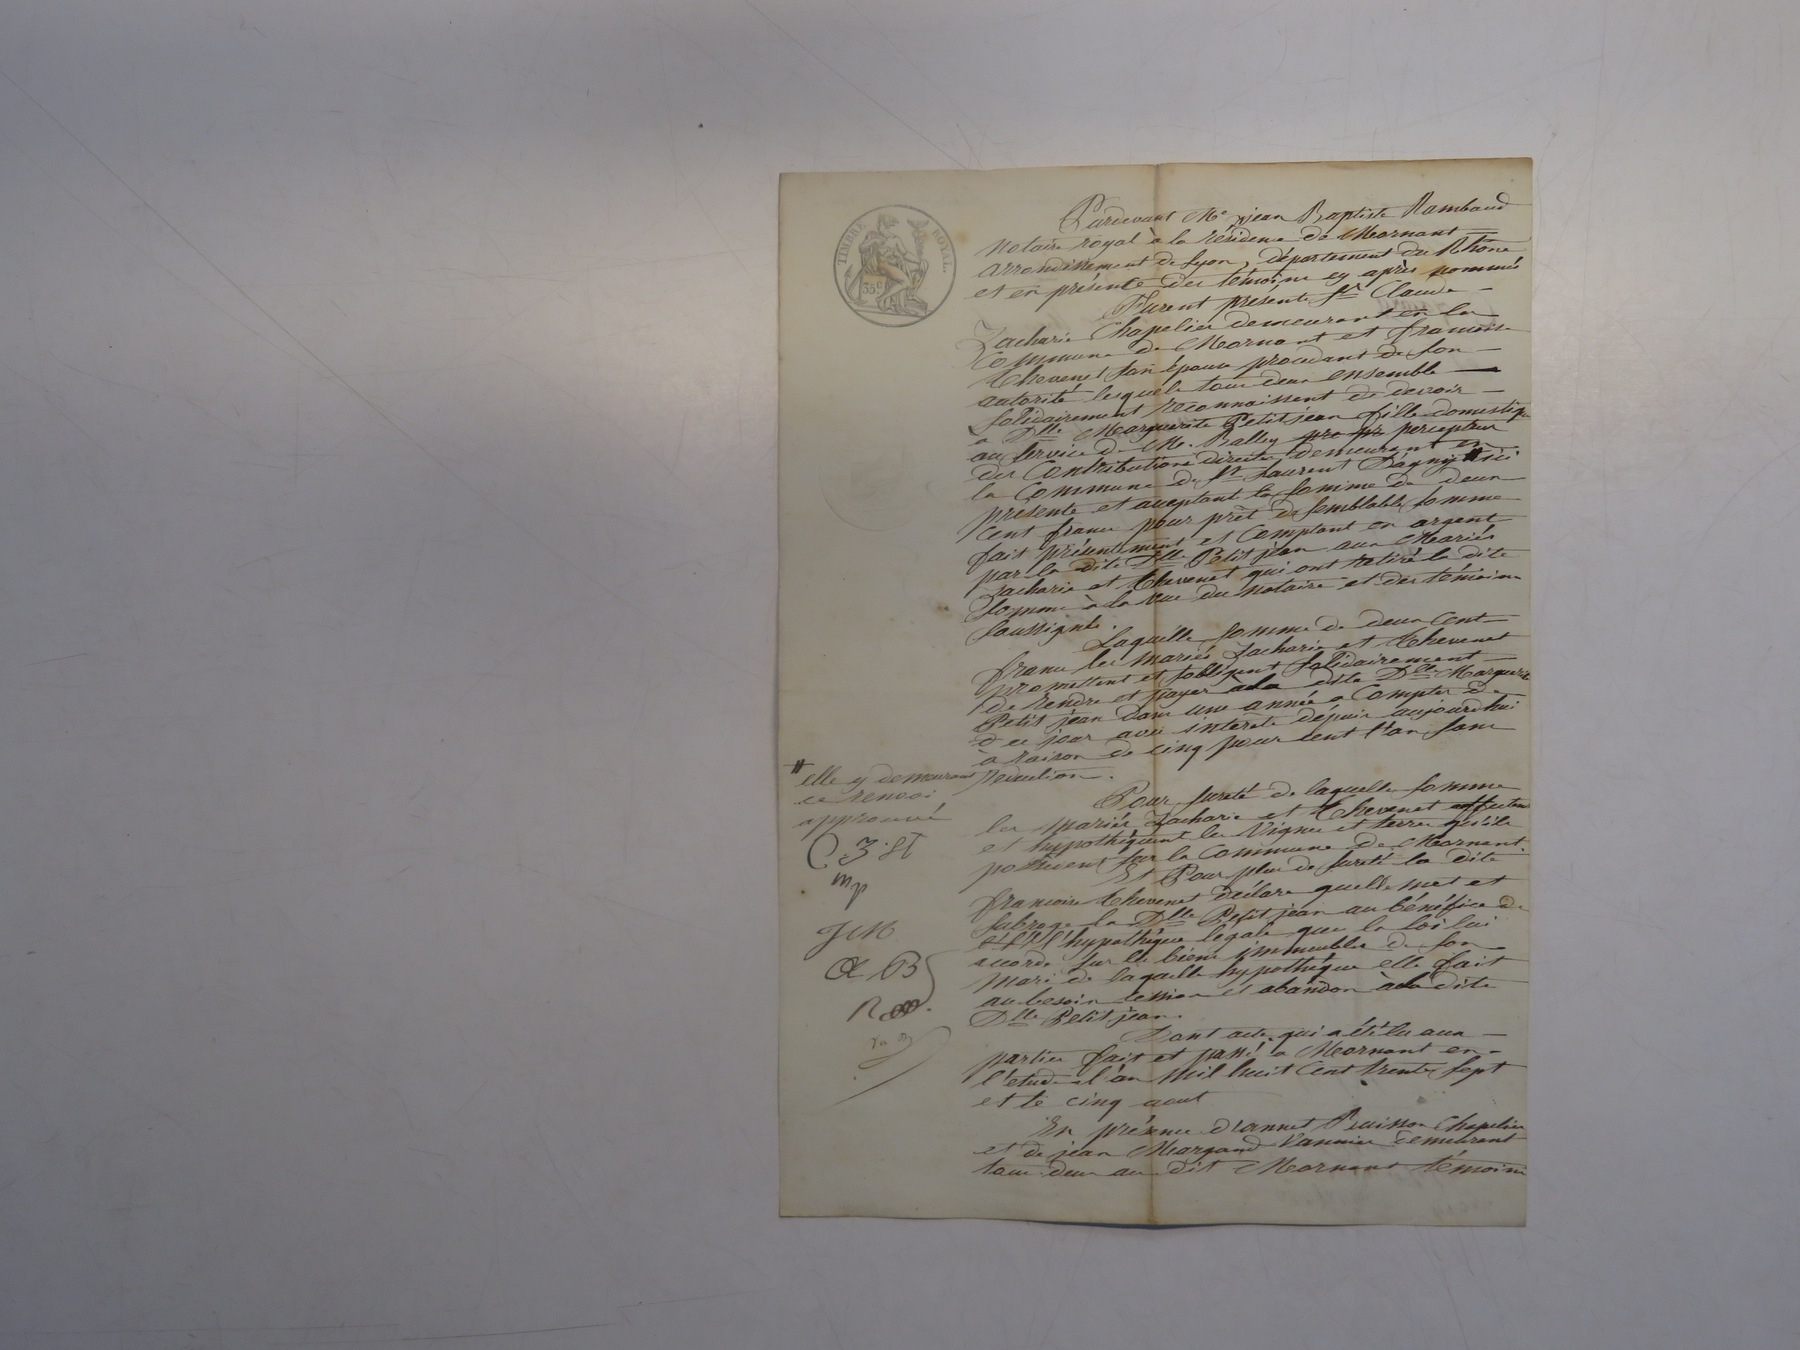 TIMBRE ROYAL.
35c
Pardevant Me jean Baptiste Rambaud
notaire royal à la résidence de Mornant
arrondissement de Lyon, département du Rhône
et en présence des témoins cy après nommés
Furent présents Sr Claude
Zacharie Chapelier demeurant en la
Commune de Mornant et francoise
Thevenet son épouse procedant de son
autorité lesquels tous deux ensemble
solidairement reconnaissent de devoir
a Dlle Marguerite Petitjean fille domestique
au service de M. Balley percepteur
des Contributions directes demeurant en
la Commune de St Laurent Dagny # ici
présente et aceptant la somme de deux
Cent francs pour prêt de semblable somme
fait présentement et Comptant en argent
par la dite Dlle Petit jean aux Mariés
Zacharie et Thevenet qui ont retiré la dite
Somme à la vue du notaire et des témoins
soussignés.
Laquelle somme de deux Cent
francs les mariés Zacharie et Thevenet
promettent et sobligent solidairement
de rendre et payer à la dite Dlle Marguerite
Petit jean dans une année a Compter de
de ce jour avec interets dépuis aujourdhui
à raison de cinq pour cent l'an sans
rétention.
# elle y demeurant
ce renvoi
approuvé
C. Z. ft
mp
J M
A B
R
Pour sureté de laquelle somme
les mariés Zacharie et Thevenet affectent
et hypothéquent les Vignes et terres qu'ils
possedent sur la Commune de Mornant
Et Pour plus de sureté la dite
francoise Thevenet déclare quelle met et
subroge la Dlle Petit jean au bénéfice de
l'hypothéque légale que la loi lui
accorde sur les biens immeubles de son
mari de laquelle hypothéque elle fait
au besoin cession et abandon à la dite
Dlle Petit jean.
Dont acte, qui a été lu aux
parties fait et passé a Mornant en
l'etude l'an Mil huit Cent trente sept
et le cinq aout
En présence dannet Buisson Chapelier
et de jean Morgand Vannier demeurant
tous deux au dit Mornant témoins